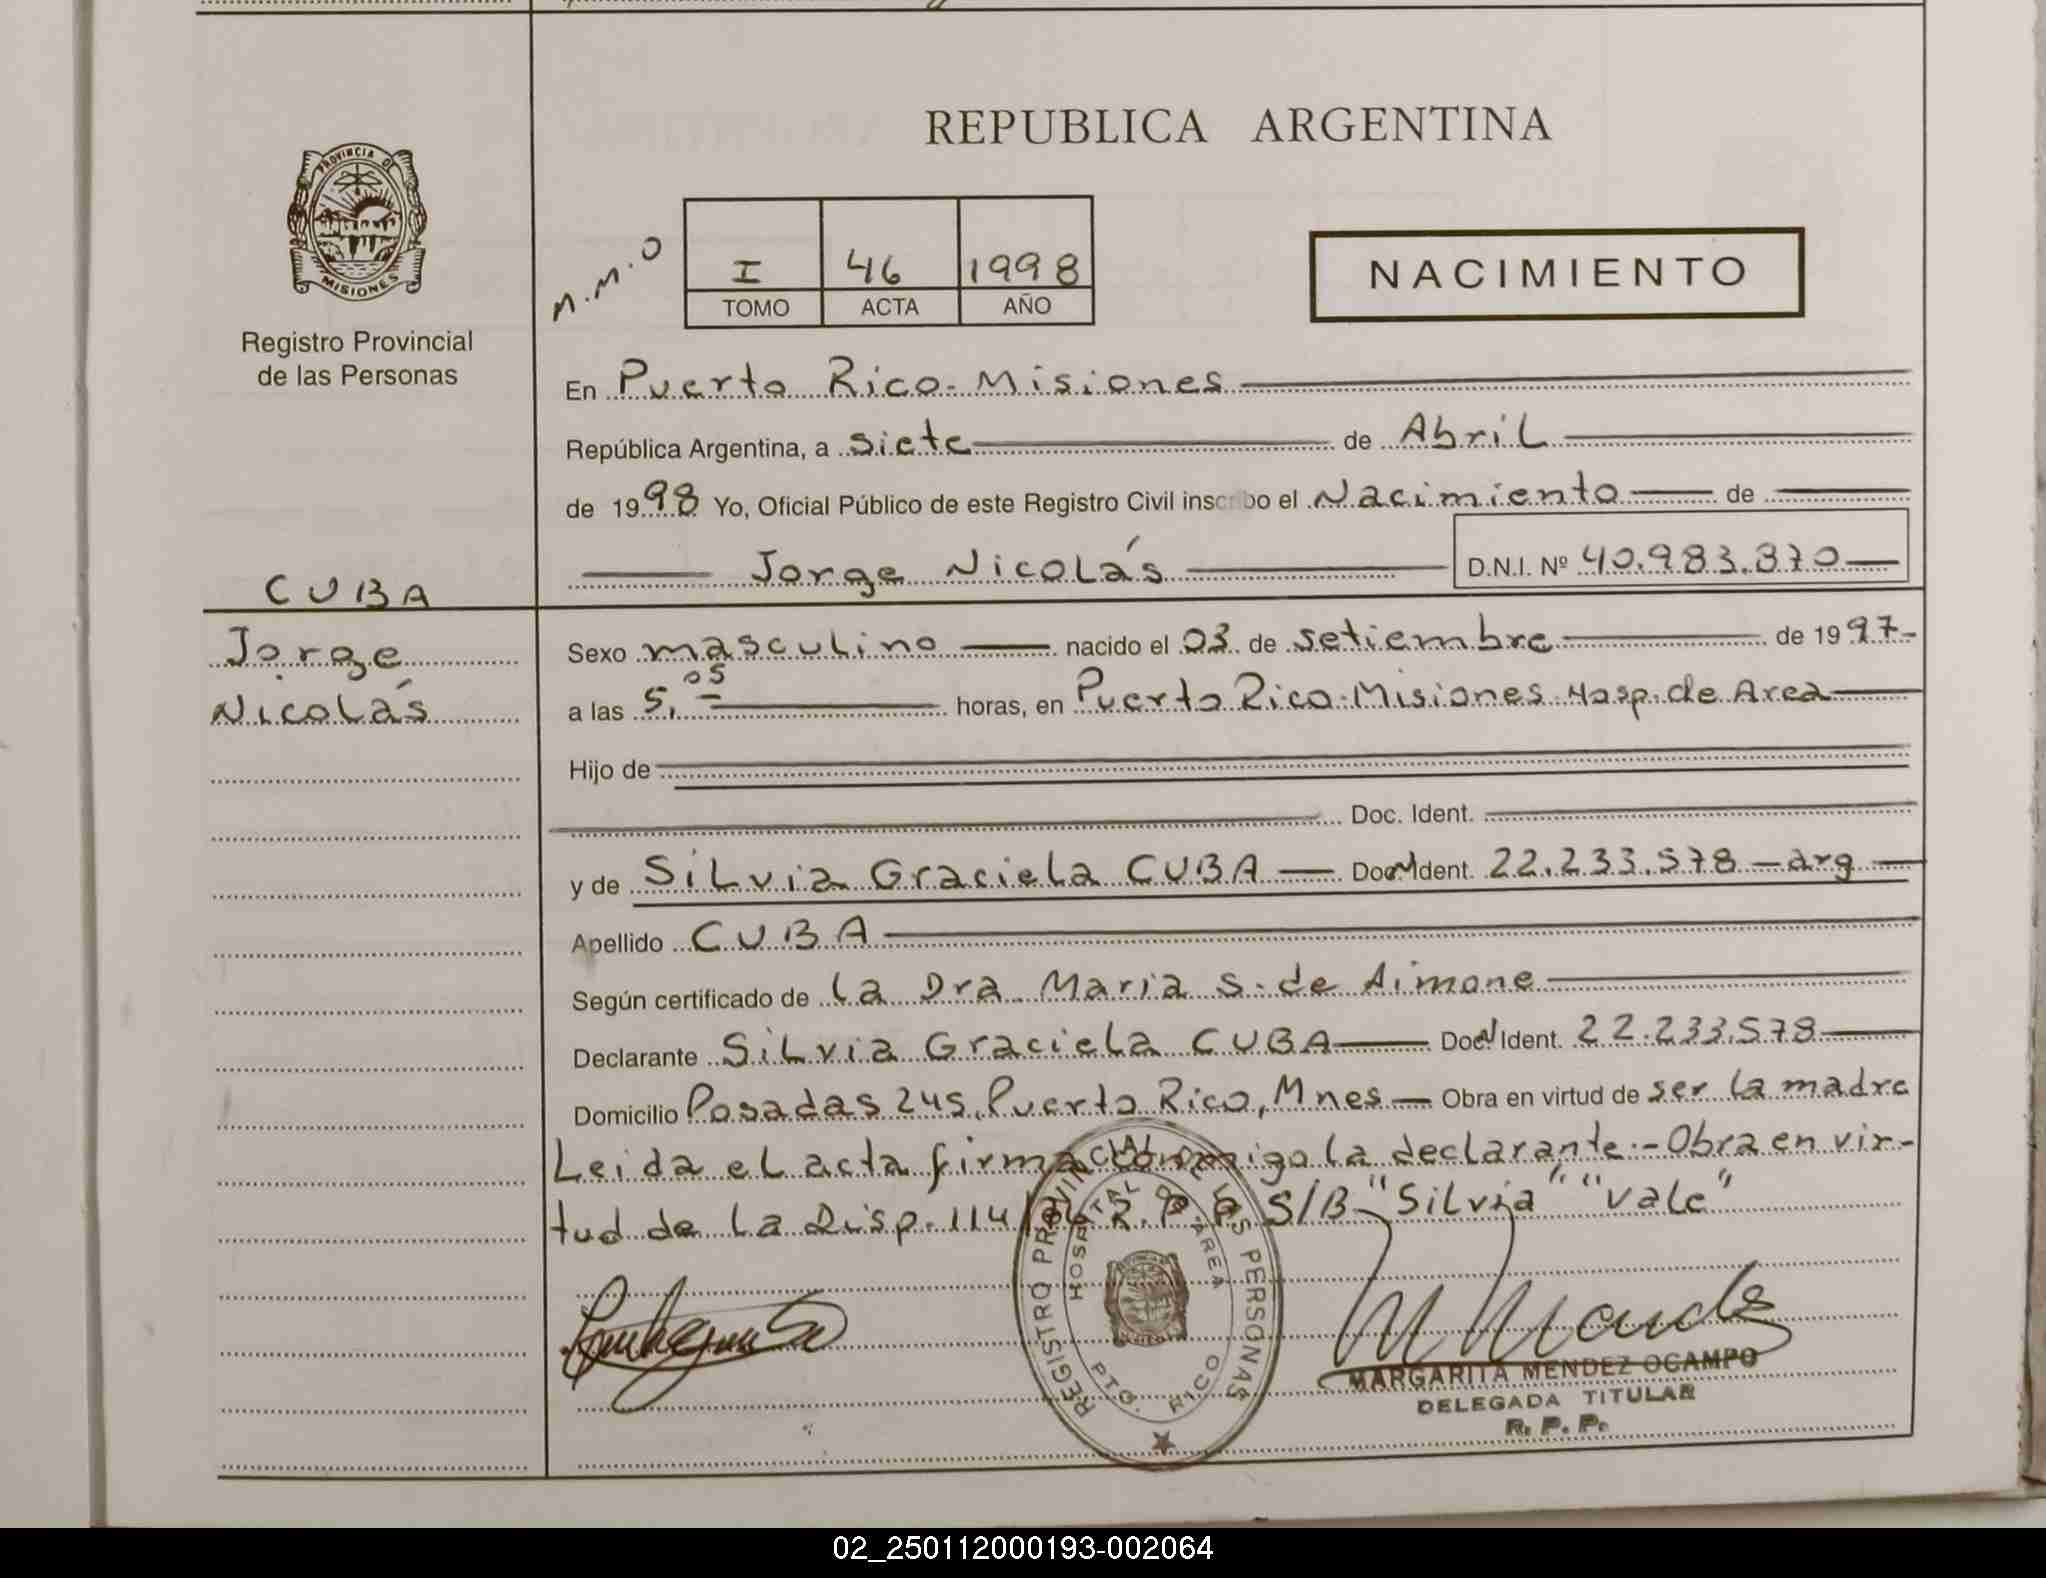 REPUBLICA ARGENTINA
PROVINCIA DE
MISIONES
Registro Provincial
de las Personas
M.M.O
I 46 1998
TOMO ACTA AÑO
NACIMIENTO
En Puerto Rico - Misiones
República Argentina, a siete de Abril
de 1998 Yo, Oficial Público de este Registro Civil inscribo el Nacimiento de
Jorge Nicolás D.N.I. Nº 40.983.870
CUBA
Jorge
Nicolás
Sexo masculino nacido el 03 de setiembre de 1997-
a las 5,05 horas, en Puerto Rico-Misiones Hosp. de Area
Hijo de
Doc. Ident.
y de Silvia Graciela CUBA Doc. Ident. 22.233.578 - arg
Apellido CUBA
Según certificado de la Dra Maria S. de Aimone
Declarante Silvia Graciela CUBA Doc. Ident. 22.233.578
Domicilio Posadas 245, Puerto Rico, Mnes Obra en virtud de ser la madre
Leida el acta firma conmigo la declarante.- Obra en vir-
tud de la Disp. 114/ R.P.P. S/B "Silvia" "vale"
REGISTRO PROVINCIAL DE LAS PERSONAS
HOSPITAL DE AREA
PTO. RICO
MARGARITA MENDEZ OCAMPO
DELEGADA TITULAR
R. P. P.
02_250112000193-002064